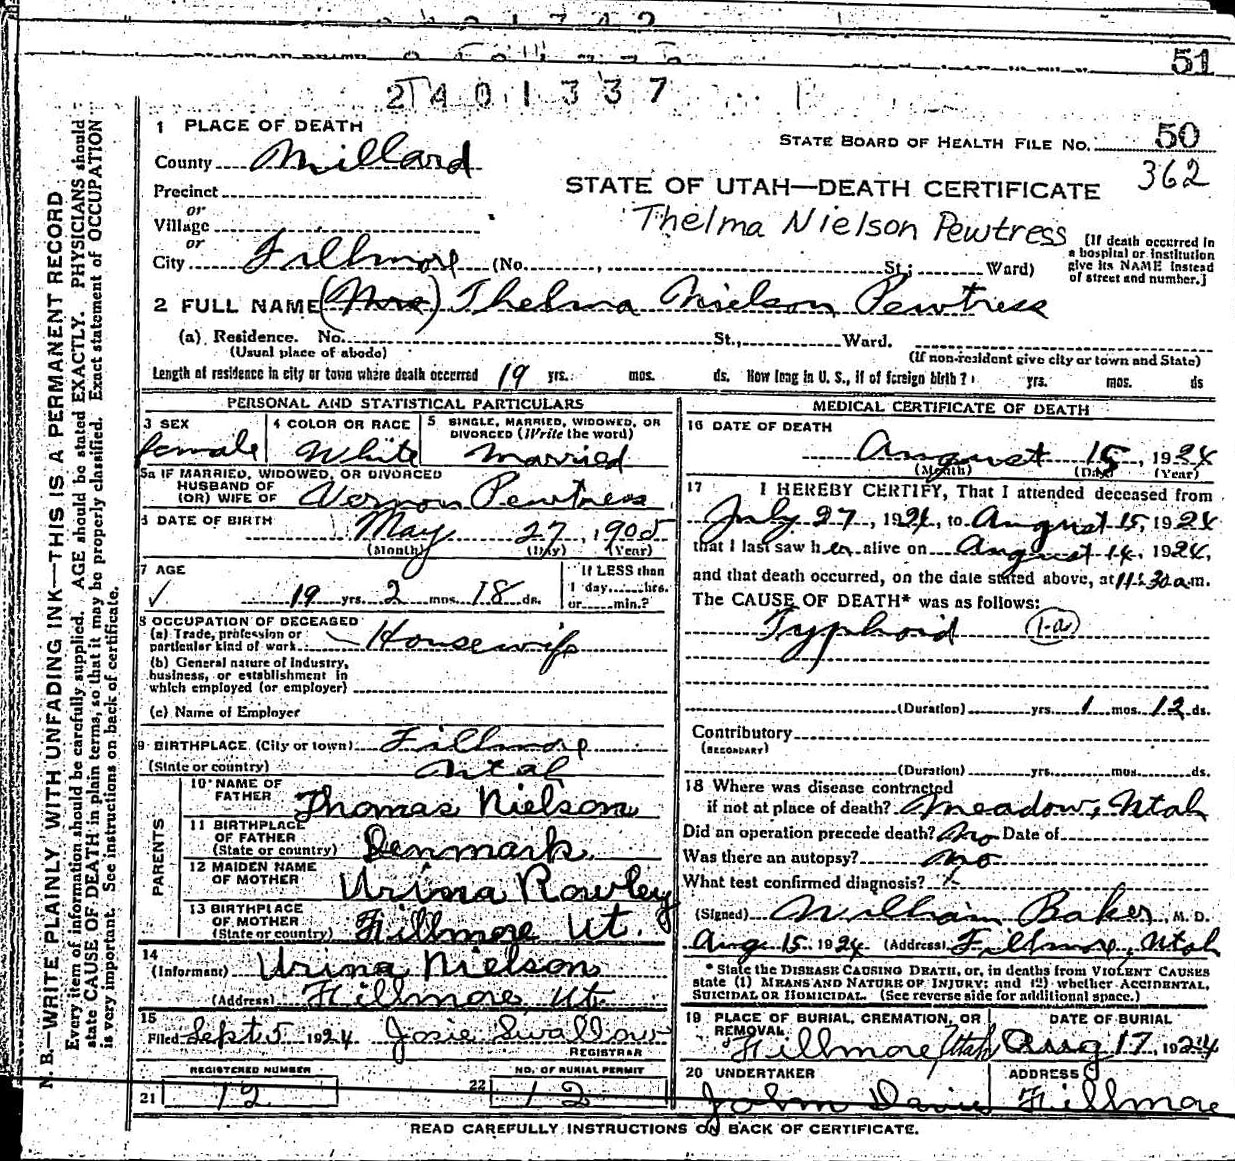 51
2401337
1 PLACE OF DEATH
STATE BOARD OF HEALTH FILE No. 50
County Millard
362
Precinct
STATE OF UTAH—DEATH CERTIFICATE
or
Village
Thelma Nielson Pewtress
or
City Fillmore (No. , St; Ward)
[If death occurred in
a hospital or institution
give its NAME instead
of street and number.]
2 FULL NAME (Mrs) Thelma Nielson Pewtress
(a) Residence. No. St., Ward.
(Usual place of abode)
(If non-resident give city or town and State)
Length of residence in city or town where death occurred 19 yrs. mos. ds. How long in U. S., if of foreign birth? yrs. mos. ds
PERSONAL AND STATISTICAL PARTICULARS
3 SEX
female
4 COLOR OR RACE
White
5 SINGLE, MARRIED, WIDOWED, OR
DIVORCED (Write the word)
Married
5a IF MARRIED, WIDOWED, OR DIVORCED
HUSBAND OF
(OR) WIFE OF Vernon Pewtress
6 DATE OF BIRTH May 27, 1905
(Month) (Day) (Year)
7 AGE
✓ 19 yrs. 2 mos. 18 ds.
If LESS than
1 day......hrs.
or......min.?
8 OCCUPATION OF DECEASED
(a) Trade, profession or
particular kind of work Housewife
(b) General nature of industry,
business, or establishment in
which employed (or employer)
(c) Name of Employer
9 BIRTHPLACE (City or town) Fillmore
(State or country) Utah
PARENTS
10 NAME OF
FATHER Thomas Nielson
11 BIRTHPLACE
OF FATHER
(State or country) Denmark
12 MAIDEN NAME
OF MOTHER Urina Rowley
13 BIRTHPLACE
OF MOTHER
(State or country) Fillmore Ut.
14
(Informant) Urina Nielson
(Address) Fillmore Ut.
15
Filed Sept 5 1924 Josie Swallow
REGISTRAR
REGISTERED NUMBER
21 12
NO. OF BURIAL PERMIT
22 12
MEDICAL CERTIFICATE OF DEATH
16 DATE OF DEATH
August 15, 1924
(Month) (Day) (Year)
17 I HEREBY CERTIFY, That I attended deceased from
July 27, 1924, to August 15, 1924
that I last saw her alive on August 14, 1924,
and that death occurred, on the date stated above, at 11:30 a.m.
The CAUSE OF DEATH* was as follows:
Typhoid (1-a)
(Duration) yrs. 1 mos. 12 ds.
Contributory
(SECONDARY)
(Duration) yrs. mos. ds.
18 Where was disease contracted
if not at place of death? Meadow, Utah
Did an operation precede death? no Date of
Was there an autopsy? no
What test confirmed diagnosis?
(Signed) William Baker, M. D.
Aug. 15, 1924 (Address) Fillmore, Utah
* State the DISEASE CAUSING DEATH, or, in deaths from VIOLENT CAUSES
state (1) MEANS AND NATURE OF INJURY; and (2) whether ACCIDENTAL,
SUICIDAL OR HOMICIDAL. (See reverse side for additional space.)
19 PLACE OF BURIAL, CREMATION, OR
REMOVAL
Fillmore Utah
DATE OF BURIAL
Aug 17, 1924
20 UNDERTAKER
John Davis
ADDRESS
Fillmore
READ CAREFULLY INSTRUCTIONS ON BACK OF CERTIFICATE.
N. B.—WRITE PLAINLY, WITH UNFADING INK—THIS IS A PERMANENT RECORD
Every item of information should be carefully supplied. AGE should be stated EXACTLY. PHYSICIANS should
state CAUSE OF DEATH in plain terms, so that it may be properly classified. Exact statement of OCCUPATION
is very important. See instructions on back of certificate.